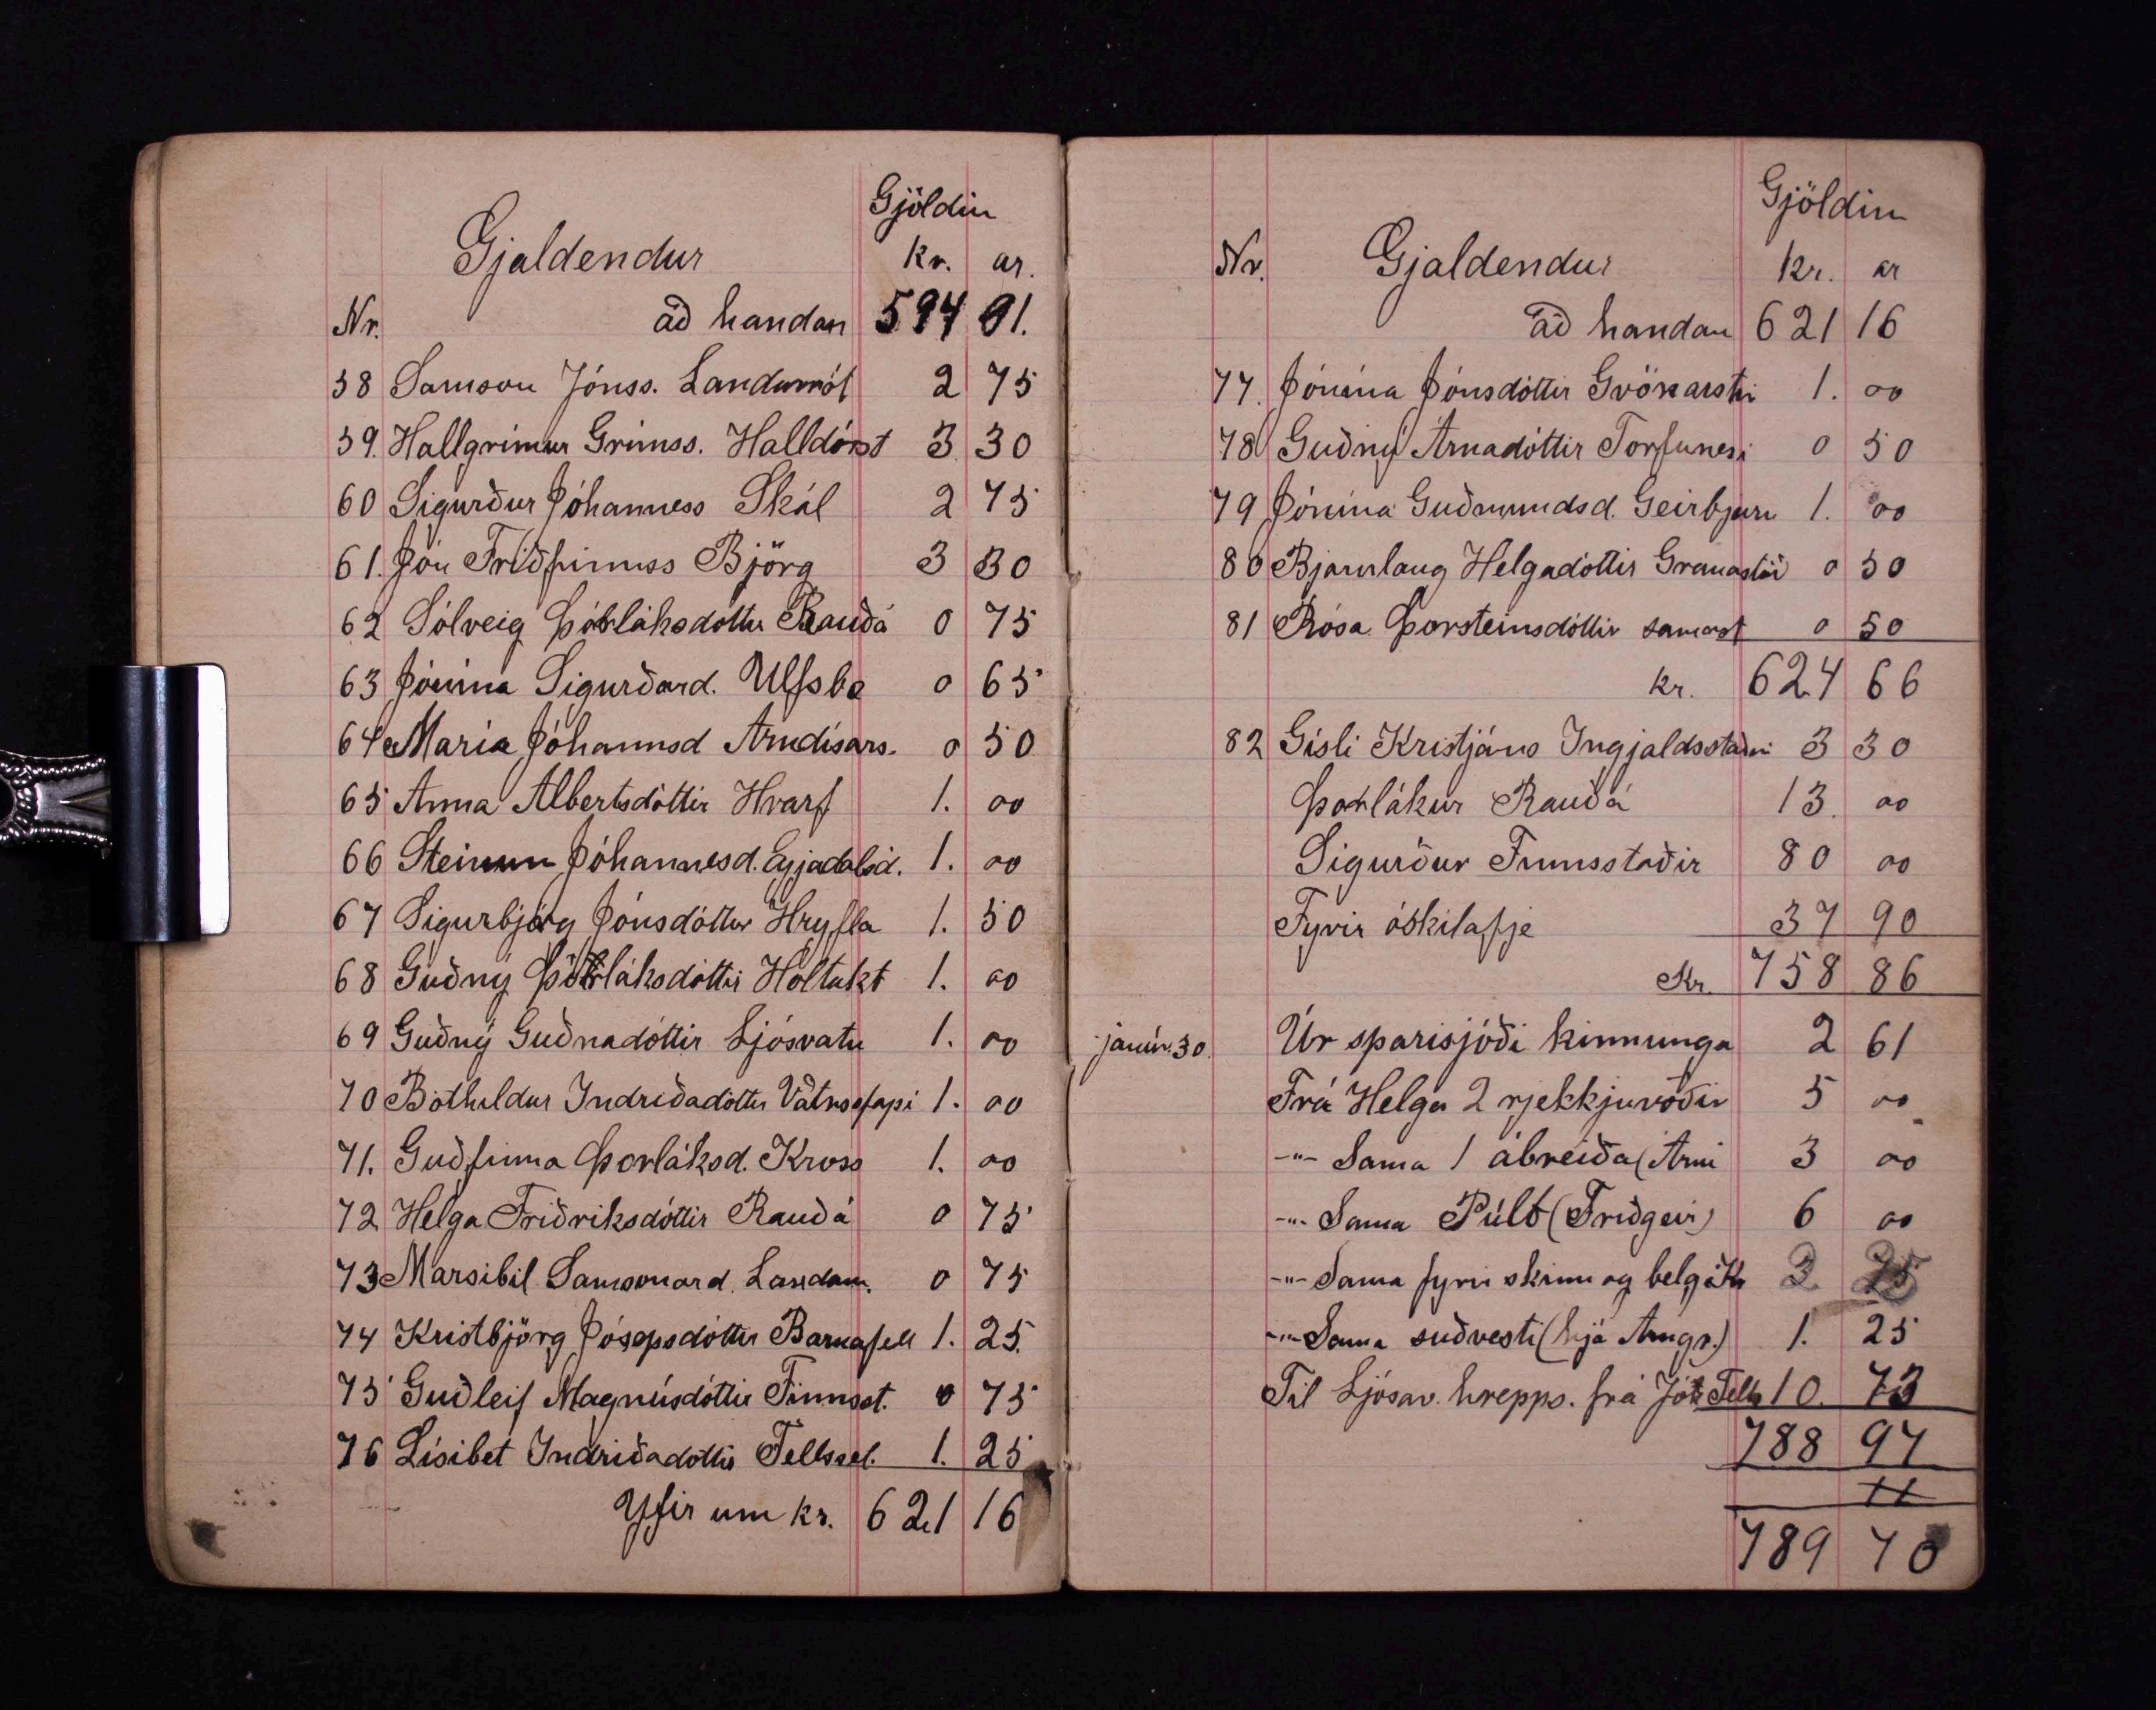 Gjöldin
Gjaldendur kr. ar.
Nr. að handan 594 91.
58 Samson Jónss. Landamót 2 75
59. Hallgrímur Grímss. Halldórst 3 30
60 Sigurður Jóhanness Skál 2 75
61. Jón Friðfinnss Björg 3 30
62 Sólveig Þorláksdóttir Rauðá 0 75
63 Jónína Sigurðard. Ulfsbæ 0 65
64 María Jóhannsd Arndísars. 0 50
65 Anna Albertsdóttir Hvarf 1. 00
66 Steinunn Jóhannesd. Eyjadalsd. 1. 00
67 Sigurbjörg Jónsdóttir Hryfla 1. 50
68 Guðný Þorláksdóttir Holtakt 1. 00
69 Guðný Guðnadóttir Ljósvatn 1. 00
70 Bóthildur Indriðadóttir 1. 00
71. Guðfinna Þorláksd. Kross 1. 00
72 Helga Friðriksdóttir Rauðá 0 75
73 Marsibil Samsonard. Landam. 0 75
74 Kristbjörg Jósepsdóttir Barnafell 1. 25.
75 Guðleif Magnúsdóttir Finnsst. 0 75
76 Lísibet Indriðadóttir Fellssel. 1. 25
Yfir um kr. 621 16
Gjöldin
Nr. Gjaldendur kr. ar
að handan 621 16
77. Jónína Jónsdóttir 1. 00
78 Guðný Árnadóttir Torfunesi 0 50
79 Jónína Guðmundsd. Geirbjarn 1. 00
80 Bjarnlaug Helgadóttir Granastöð 0 50
81 Rósa Þorsteinsdóttir samast 0 50
kr. 624 66
82 Gísli Kristjáns Ingjaldsstaðir 3 30
Þorlákur Rauðá 13. 00
Sigurður Finnsstaðir 80 00
Fyrir óskilafje 37 90
Kr. 758 86
janúr. 30. Úr sparisjóði kinnunga 2 61
Frá Helga 2 rjekkjuvoðir 5 00
-"- Sama 1 ábreiða (Árni 3 00
-"- Sama Púlt (Friðgeir) 6 00
-"- Sama fyrir skinn og belg 2 25
-"- Sama suðvesti (hjá Arngr.) 1. 25
Til Ljósav. hrepps. frá Fells 10. 73
788 97
789 70